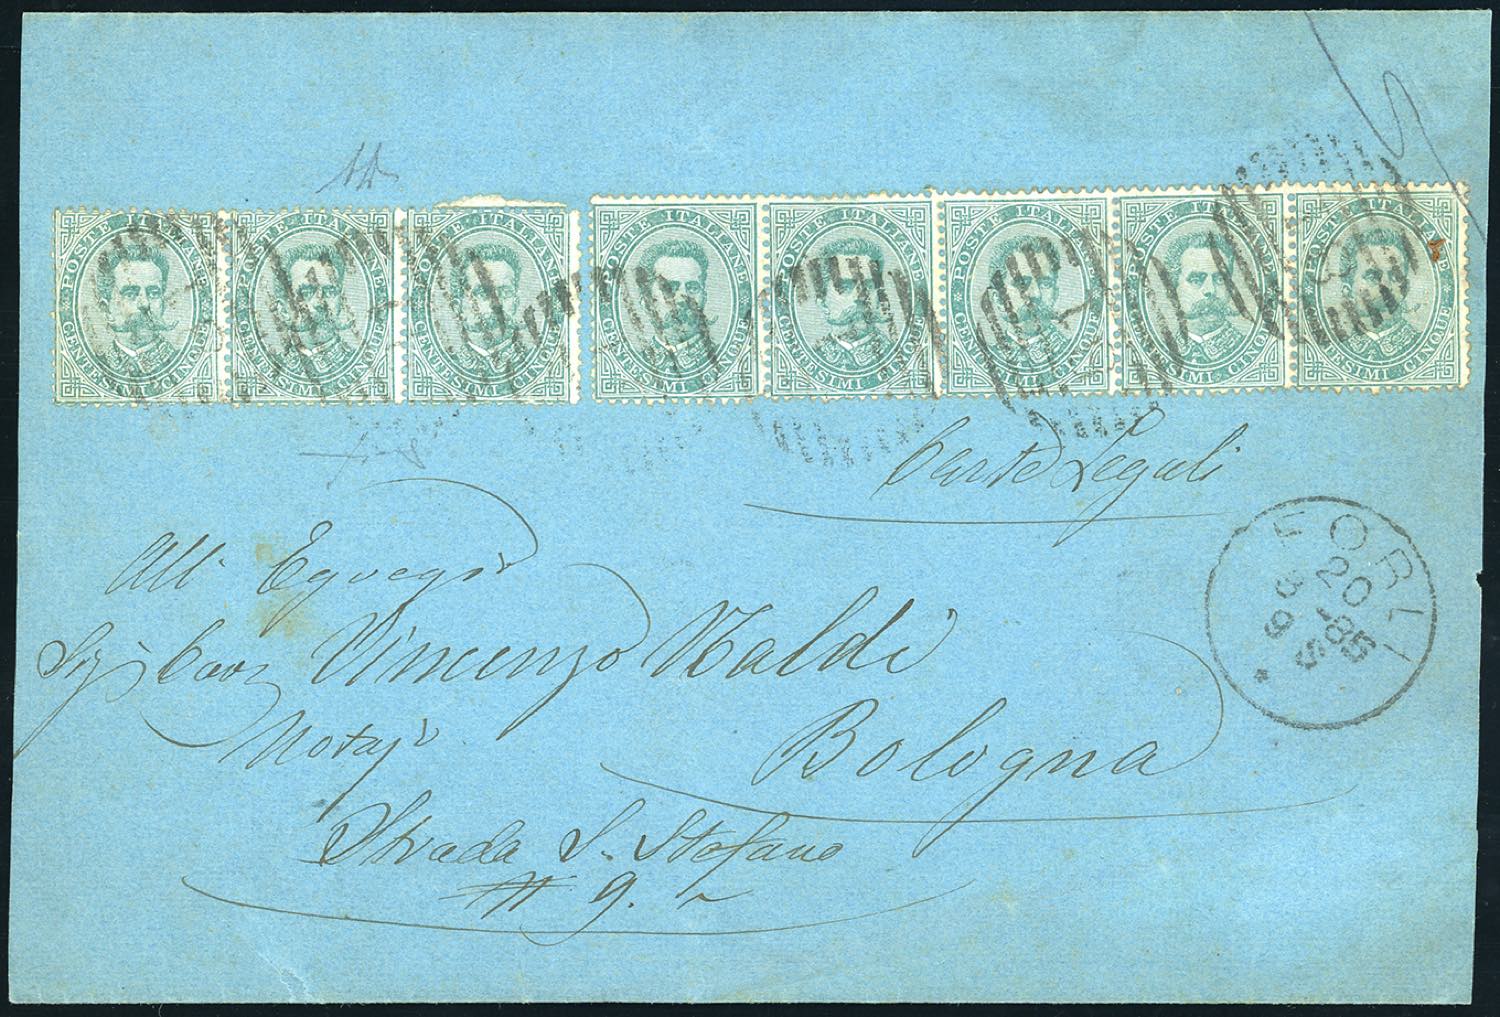 POSTE ITALIANE CENTESIMI CINQUE
POSTE ITALIANE CENTESIMI CINQUE
POSTE ITALIANE CENTESIMI CINQUE
POSTE ITALIANE CENTESIMI CINQUE
POSTE ITALIANE CENTESIMI CINQUE
POSTE ITALIANE CENTESIMI CINQUE
POSTE ITALIANE CENTESIMI CINQUE
POSTE ITALIANE CENTESIMI CINQUE
Carte Legali
FORLI
20
All'
Vincenzo
Notajo
Bologna
Strada S. Stefano
9.